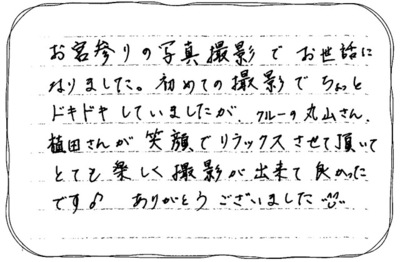 お宮参りの写真撮影でお世話に
なりました。初めての撮影でちょっと
ドキドキしていましたが、クルーの丸山さん、
植田さんが笑顔でリラックスさせて頂いて
とても楽しく撮影が出来て良かった
です♪ ありがとうございました